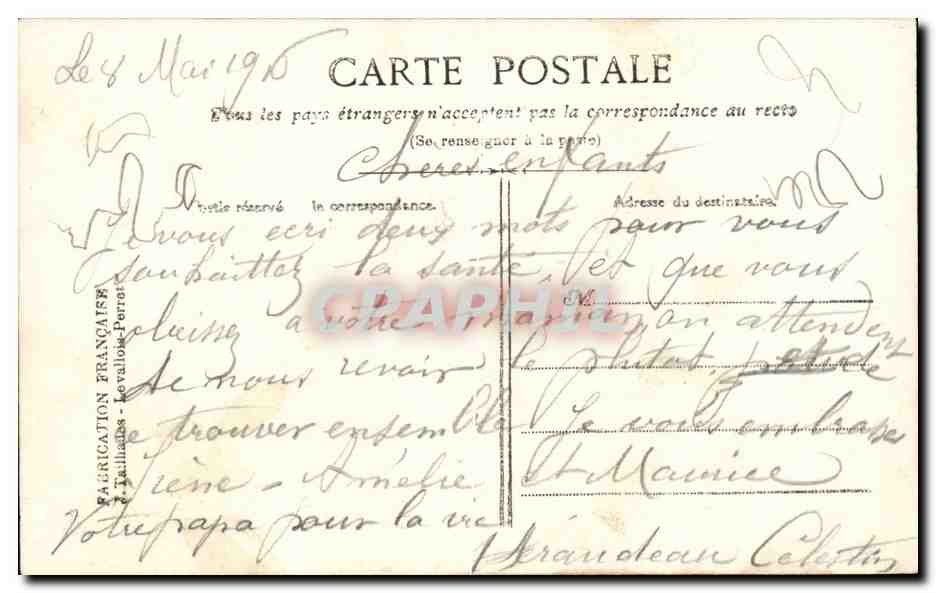 Le 8 Mai 1916
CARTE POSTALE
Tous les pays étrangers n'acceptent pas la correspondance au recto
(Se renseigner à la poste)
Chères enfants
Partie réservé à la correspondance.
Adresse du destinataire.
Je vous ecri deux mots pour vous
souhaittez la santé, et que vous
plaissez a votre maman, on attendent
de nous revoir le plutot
se trouver ensemble Je vous embrasse
Irène - Amélie et Maurice
Votre papa pour la vie
Hérandeau Célestin
M.
FABRICATION FRANÇAISE
Tailhades - Levallois-Perret
CPAPHIL